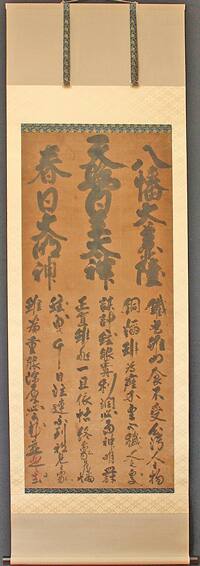 八幡大菩薩
天照皇大神
春日大明神
鐵丸雖為食不受心人物
銅焔雖為座不心人處
謀計雖眼前利潤必當神明罰
正直雖非一旦依怙終蒙日月憐
雖曳千日注連不到邪見家
雖為重服深厚可趣慈悲室